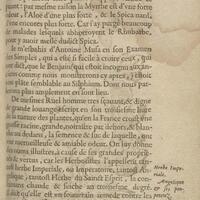 pant: par mesme raison la Myrrhe est d'une forte
odeur, l'Aloë d'une plus forte, & le Spica mardi,
d'une encores plus forte. Car i'ay purgé beaucoup
de malades lesquels abhorroyent le Rhubarbe,
pour y avoir meslé dudict Spica.
Ie m'esbahis d'Antoine Musa en son Examen
des Simples, qui a esté si facile à croire ceux, qui
ont dict, que le Benjuin (qui estoit incognu aux an-
ciens comme nous monstrerons cy apres,) estoit
une plante semblable au Silphium. Dont nous par-
lerons plus amplement en son lieu.
De mesme Ruel homme tres sçavant, & digne
de grande louange, escript en son troisiesme livre de
la nature des plantes, qu'on la France croist une
racine, grande, noirastre par dehors, & blan-
che au dedans, la semence & suc de laquelle, ont une
merveilleuse & amiable odeur. On luy donne
noms illustres, à cause de ses grandes proprie-
tés & vertus, car les Herboristes l'appellent
herbe Imperiale, ou Imperatoire, tantost
tantost Herbe du Sainct Esprit, la
commune chaude, & seiche au troisiesme degré.
dict qu'elle est un souverain remede contre les
Herbe Impe-
riale.
Angelique
& ses pro-
prietez.